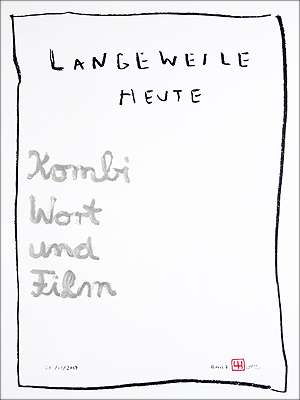 LANGEWEILE
HEUTE
Kombi
Wort
und
Film